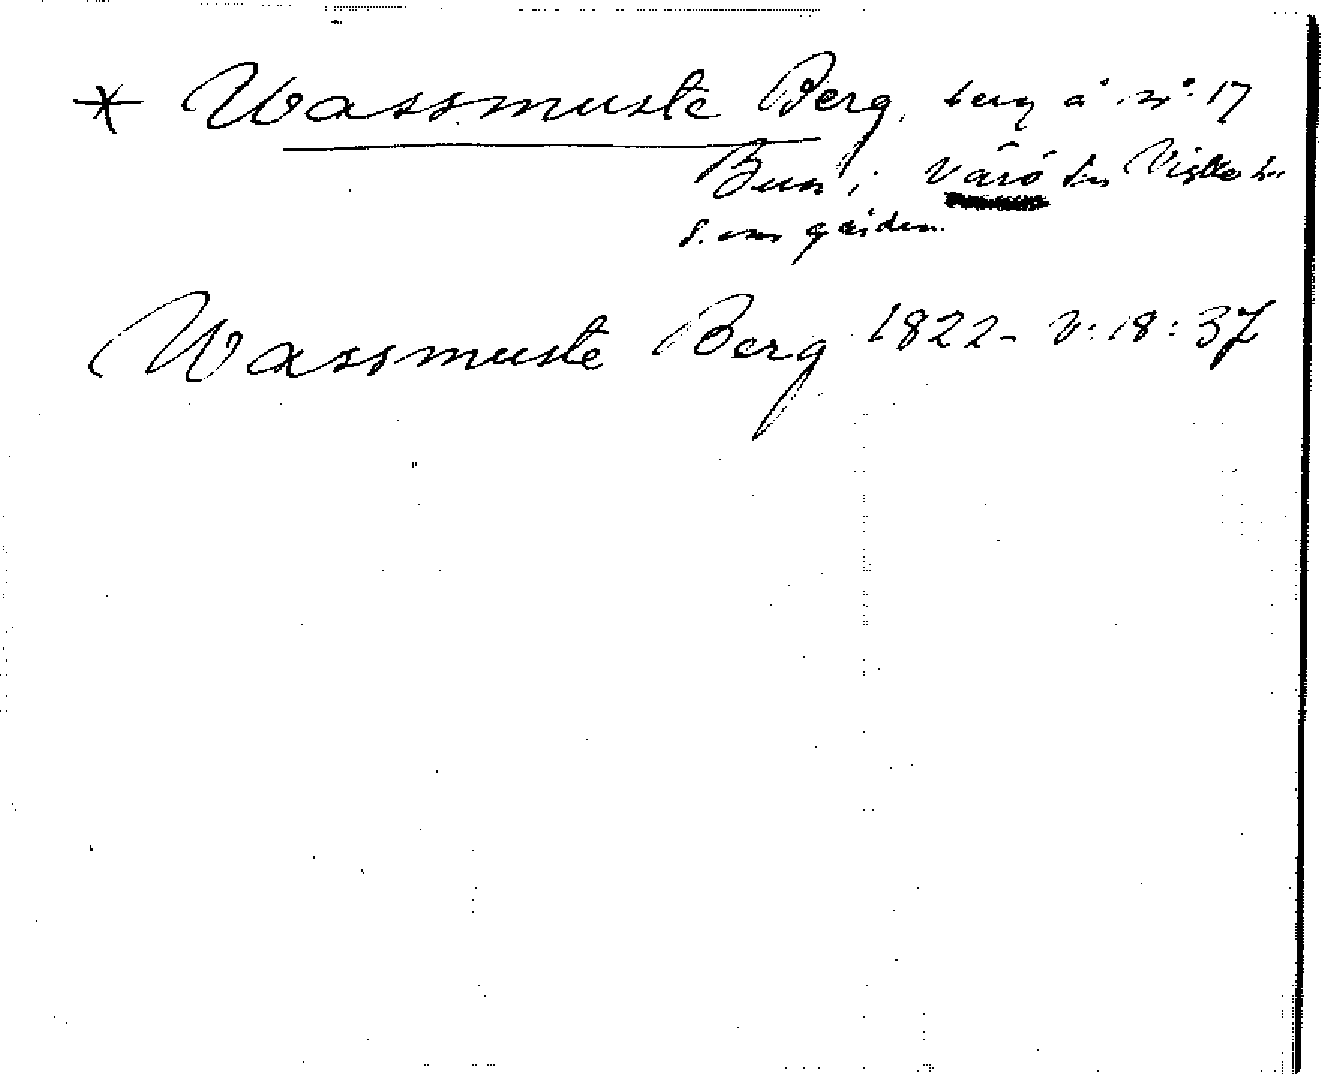 * Wassmuste Berg, berg å nº 17
Bua i Värö sn Viske hd
S. om gården.
Wassmuste Berg 1822 - V: 18: 37